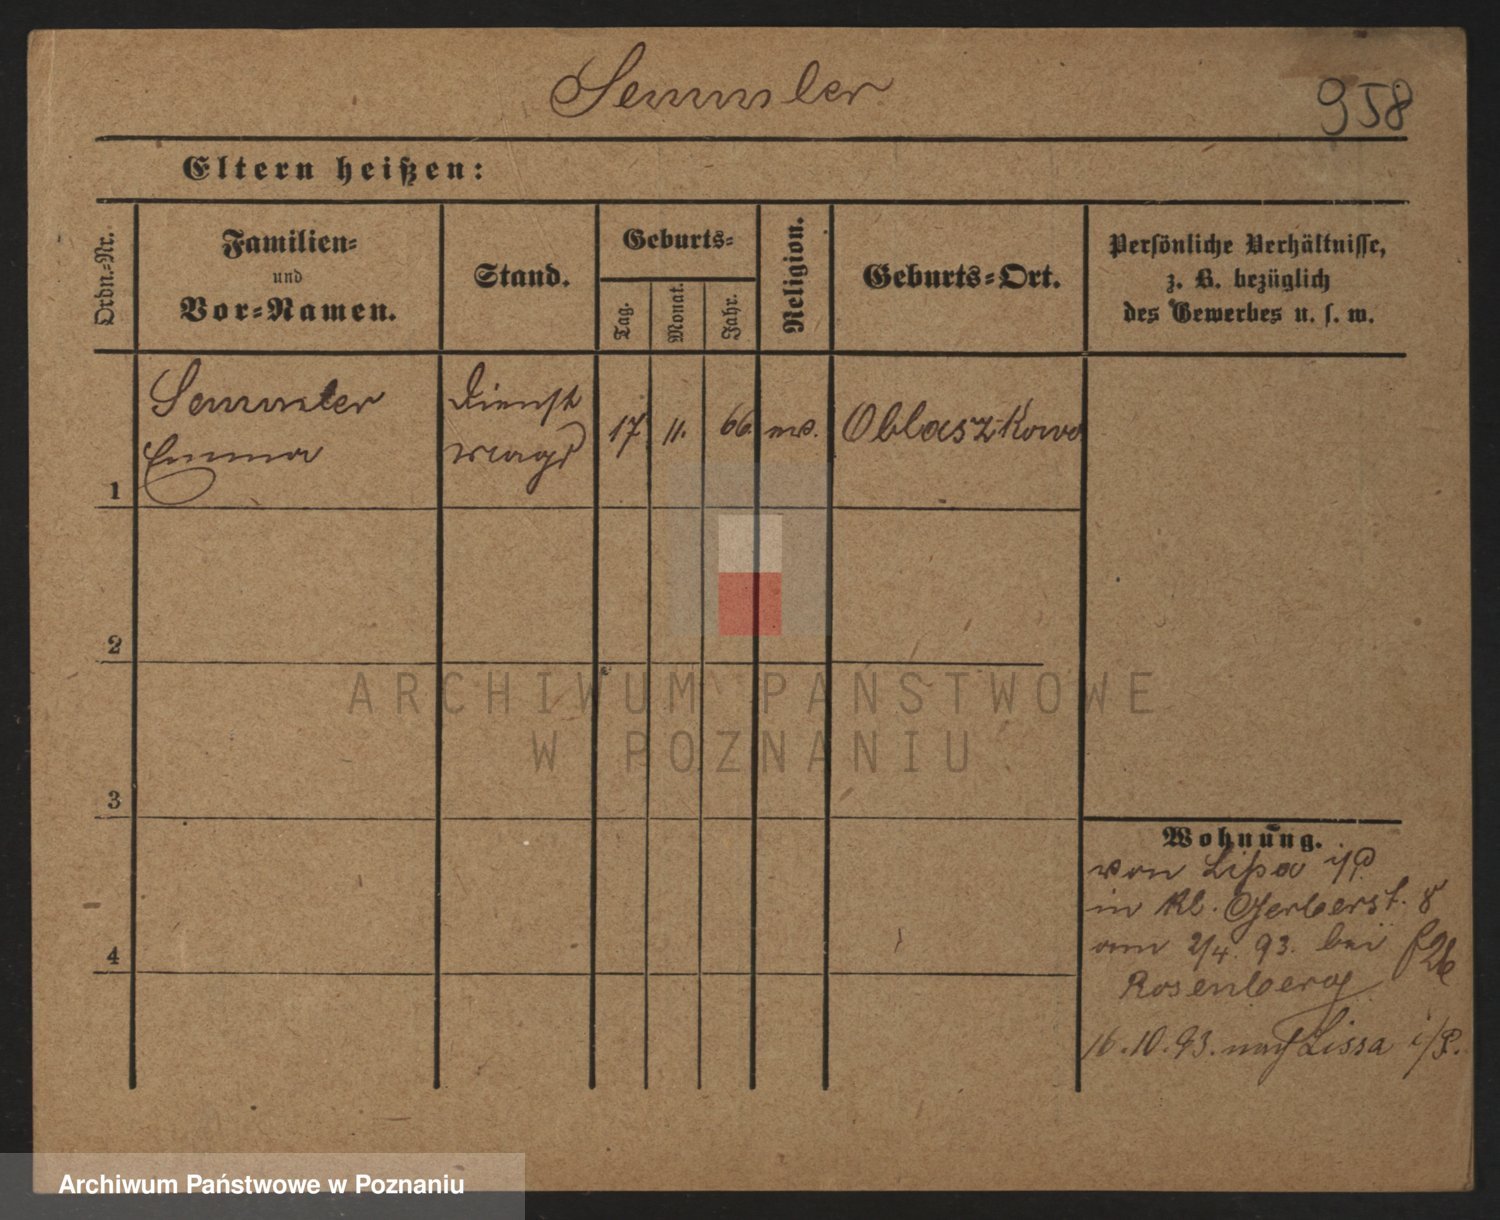 Semmler
958
Eltern heißen:
Ordn.-Nr.
Familien-
und
Vor-Namen.
Stand.
Geburts-
Tag.
Monat.
Jahr.
Religion.
Geburts-Ort.
Persönliche Verhältnisse,
z. B. bezüglich
des Gewerbes u. s. w.
1
Semmler
Emma
Dienst
magd
17 11. 66
Oblaszkowo
2
3
4
Wohnung.
von Lißa i/P
in Kl. Gerberst. 8
am 2/4. 93. bei
Rosenberg
16.10.93. nach Lissa i/P.
ARCHIWUM PAŃSTWOWE
W POZNANIU
Archiwum Państwowe w Poznaniu